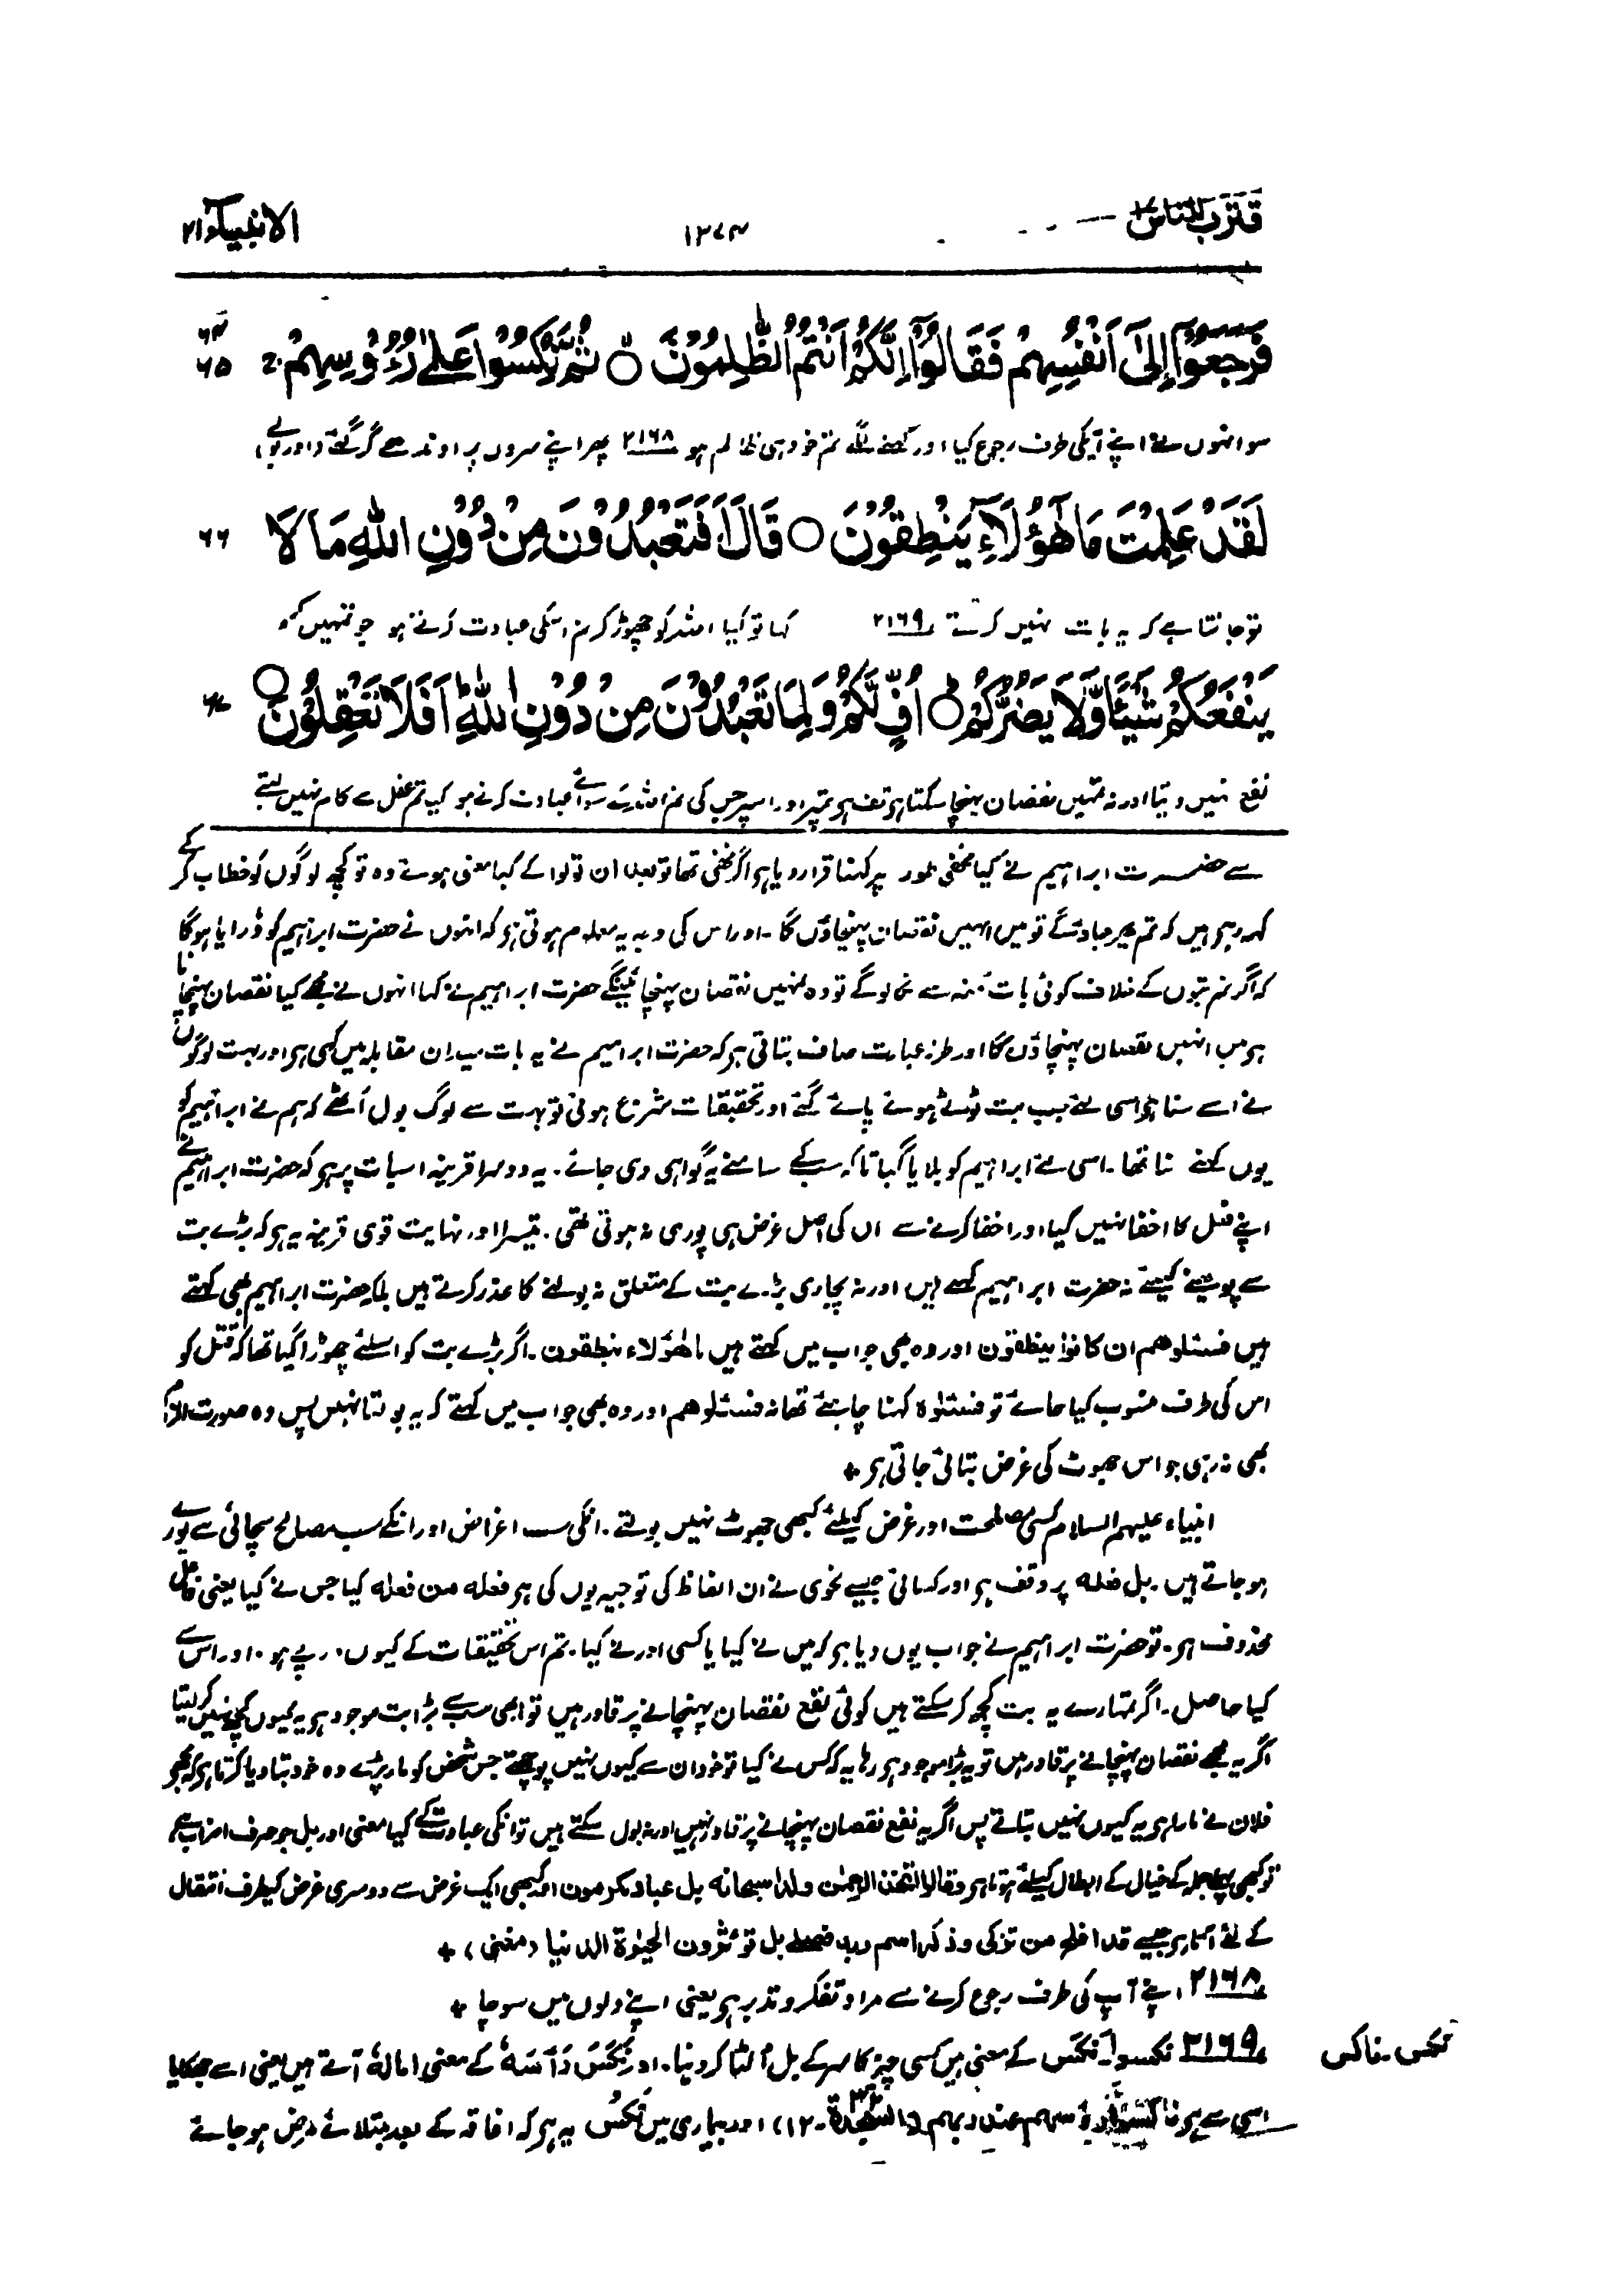 اقترب للناس ١٧
١٢٧٤
الانبیاء ٢١
فَرَجَعُوْٓا اِلٰٓى اَنْفُسِهِمْ فَقَالُوْٓا اِنَّكُمْ اَنْتُمُ الظّٰلِمُوْنَ ۙ ثُمَّ نُكِسُوْا عَلٰى رُءُوْسِهِمْ ۚ ٦٤ ٦٥
سو انہوں نے اپنے آپ کی طرف رجوع کیا اور کہنے لگے تم خود ہی ظالم ہو ٢١٦٨ پھر اپنے سروں پر اوندھے گر گئے (اور بولے)
لَقَدْ عَلِمْتَ مَا هٰٓؤُلَآءِ يَنْطِقُوْنَ ○ قَالَ اَفَتَعْبُدُوْنَ مِنْ دُوْنِ اللّٰهِ مَا لَا ٦٦
تو جانتا ہے کہ یہ بات نہیں کرتے ٢١٦٩ کہا تو کیا اللہ کو چھوڑ کر تم اسکی عبادت کرتے ہو جو تمہیں کچھ
يَنْفَعُكُمْ شَيْـًٔا وَّلَا يَضُرُّكُمْ ○ اُفٍّ لَّكُمْ وَلِمَا تَعْبُدُوْنَ مِنْ دُوْنِ اللّٰهِ ؕ اَفَلَا تَعْقِلُوْنَ ○ ٦٧
نفع نہیں دیتا اور نہ تمہیں نقصان پہنچا سکتا ہو تف ہو تمپر اور اسپر جس کی تم اللہ کے سوائے عبادت کرتے ہو کیا تم عقل سے کام نہیں لیتے
سے حضرت ابراہیم نے کیا مخفی طور پر کہنا قرار دیا ہو اگر مخفی تھا تو بعد ان تولوا کے کیا معنی ہوئے وہ تو کچھ لوگوں کو خطاب کر کے
کہہ رہو ہیں کہ تم پھر جاؤ گے تو میں انہیں نقصان پہنچاؤں گا۔ اور اس کی وجہ یہ معلوم ہوتی ہو کہ انہوں نے حضرت ابراہیم کو ڈرایا ہوگا
کہ اگر تم بتوں کے خلاف کوئی بات منہ سے نکالو گے تو وہ تمہیں نقصان پہنچائینگے حضرت ابراہیم نے کہا انہوں نے مجھے کیا نقصان پہنچانا
ہو میں انہیں نقصان پہنچاؤں گا اور طرز عبارت صاف بتاتی ہو کہ حضرت ابراہیم نے یہ بات میدان مقابلہ میں کہی ہو اور بہت لوگوں
نے اسے سنا ہو اسی لئے جب بت ٹوٹے ہوئے پائے گئے اور تحقیقات شروع ہوئی تو بہت سے لوگ بول اُٹھے کہ ہم نے ابراہیم کو
یوں کہتے سنا تھا۔ اسی لئے ابراہیم کو بلایا گیا تاکہ سب کے سامنے یہ گواہی دی جائے۔ یہ دوسرا قرینہ اسبات پر ہو کہ حضرت ابراہیم نے
اپنے فعل کا اخفا نہیں کیا اور اخفا کرنے سے ان کی اصل غرض ہی پوری نہ ہوتی تھی۔ تیسرا اور نہایت قوی قرینہ یہ ہو کہ بڑے بت
سے پوچھنے کیلئے نہ حضرت ابراہیم کہتے ہیں اور نہ پجاری بڑے بت کے متعلق نہ بولنے کا عذر کرتے ہیں بلکہ حضرت ابراہیم بھی کہتے
ہیں فسئلوهم ان كانوا ينطقون اور وہ بھی جواب میں کہتے ہیں ما هٰؤلاء ينطقون۔ اگر بڑے بت کو اسلئے چھوڑا گیا تھا کہ قتل کو
اس کی طرف منسوب کیا جائے تو فسئلوه کہنا چاہئے تھا نہ فسئلوهم اور وہ بھی جواب میں کہتے کہ یہ بولتا نہیں پس وہ صورت الزام
بھی نہ رہی جو اس جھوٹ کی غرض بتائی جاتی ہو +
انبیاء علیہم السلام کسی مصلحت اور غرض کیلئے کبھی جھوٹ نہیں بولتے۔ انکی سب اغراض اور انکے سب مصالح سچائی سے پورے
ہو جاتے ہیں۔ بل فعله پر وقف ہو اور کسائی جیسے نحوی نے ان الفاظ کی توجیہ یوں کی ہو فعله من فعله کیا جس نے کیا یعنی فاعل
محذوف ہو۔ تو حضرت ابراہیم نے جواب یوں دیا ہو کہ میں نے کیا یا کسی اور نے کیا۔ تم اس تحقیقات کے کیوں درپے ہو۔ اور اس سے
کیا حاصل۔ اگر تمہارے یہ بت کچھ کر سکتے ہیں کوئی نفع نقصان پہنچانے پر قادر ہیں تو ابھی سب سے بڑا بت موجود ہو یہ کیوں کچھ نہیں کر لیتا
اگر یہ مجھے نقصان پہنچانے پر قادر ہیں تو یہ بڑا موجود ہو رہا یہ کہ کس نے کیا تو خود ان سے کیوں نہیں پوچھتے جس شخص کو مار پڑے وہ خود بتا دیا کرتا ہو کہ مجھے
فلاں نے مارا ہو یہ کیوں نہیں بتاتے پس اگر یہ نفع نقصان پہنچانے پر قادر نہیں اور نہ بول سکتے ہیں تو انکی عبادت کے کیا معنی اور بل جو حرف اضراب ہو
تو کبھی پہلے جملہ کے خیال کے ابطال کیلئے ہوتا ہو وقالوا اتخذ الرحمٰن ولدا سبحانه بل عباد مكرمون اور کبھی ایک غرض سے دوسری غرض کیطرف انتقال
کے لئے آتا ہو جیسے قد افلح من تزكى وذكر اسم ربه فصلى بل تؤثرون الحيوٰة الدنيا (مغنی) +
٢١٦٨ اپنے آپ کی طرف رجوع کرنے سے مراد تفکر و تدبر ہو یعنی اپنے دلوں میں سوچا +
٢١٦٩ نكسوا۔ نَكْس کے معنی ہیں کسی چیز کا سر کے بل اُلٹا کر دینا۔ اور نَكَسَ رَأْسَهٗ کے معنی امالهٗ آتے ہیں یعنی اسے جھکایا
نکس۔ ناکس
اسی سے ہو ناكسوا رءوسهم عند ربهم (السجدة ٣٢۔ ١٢) اور بیماری میں نُكْسٌ یہ ہو کہ افاقہ کے بعد مبتلائے مرض ہو جائے